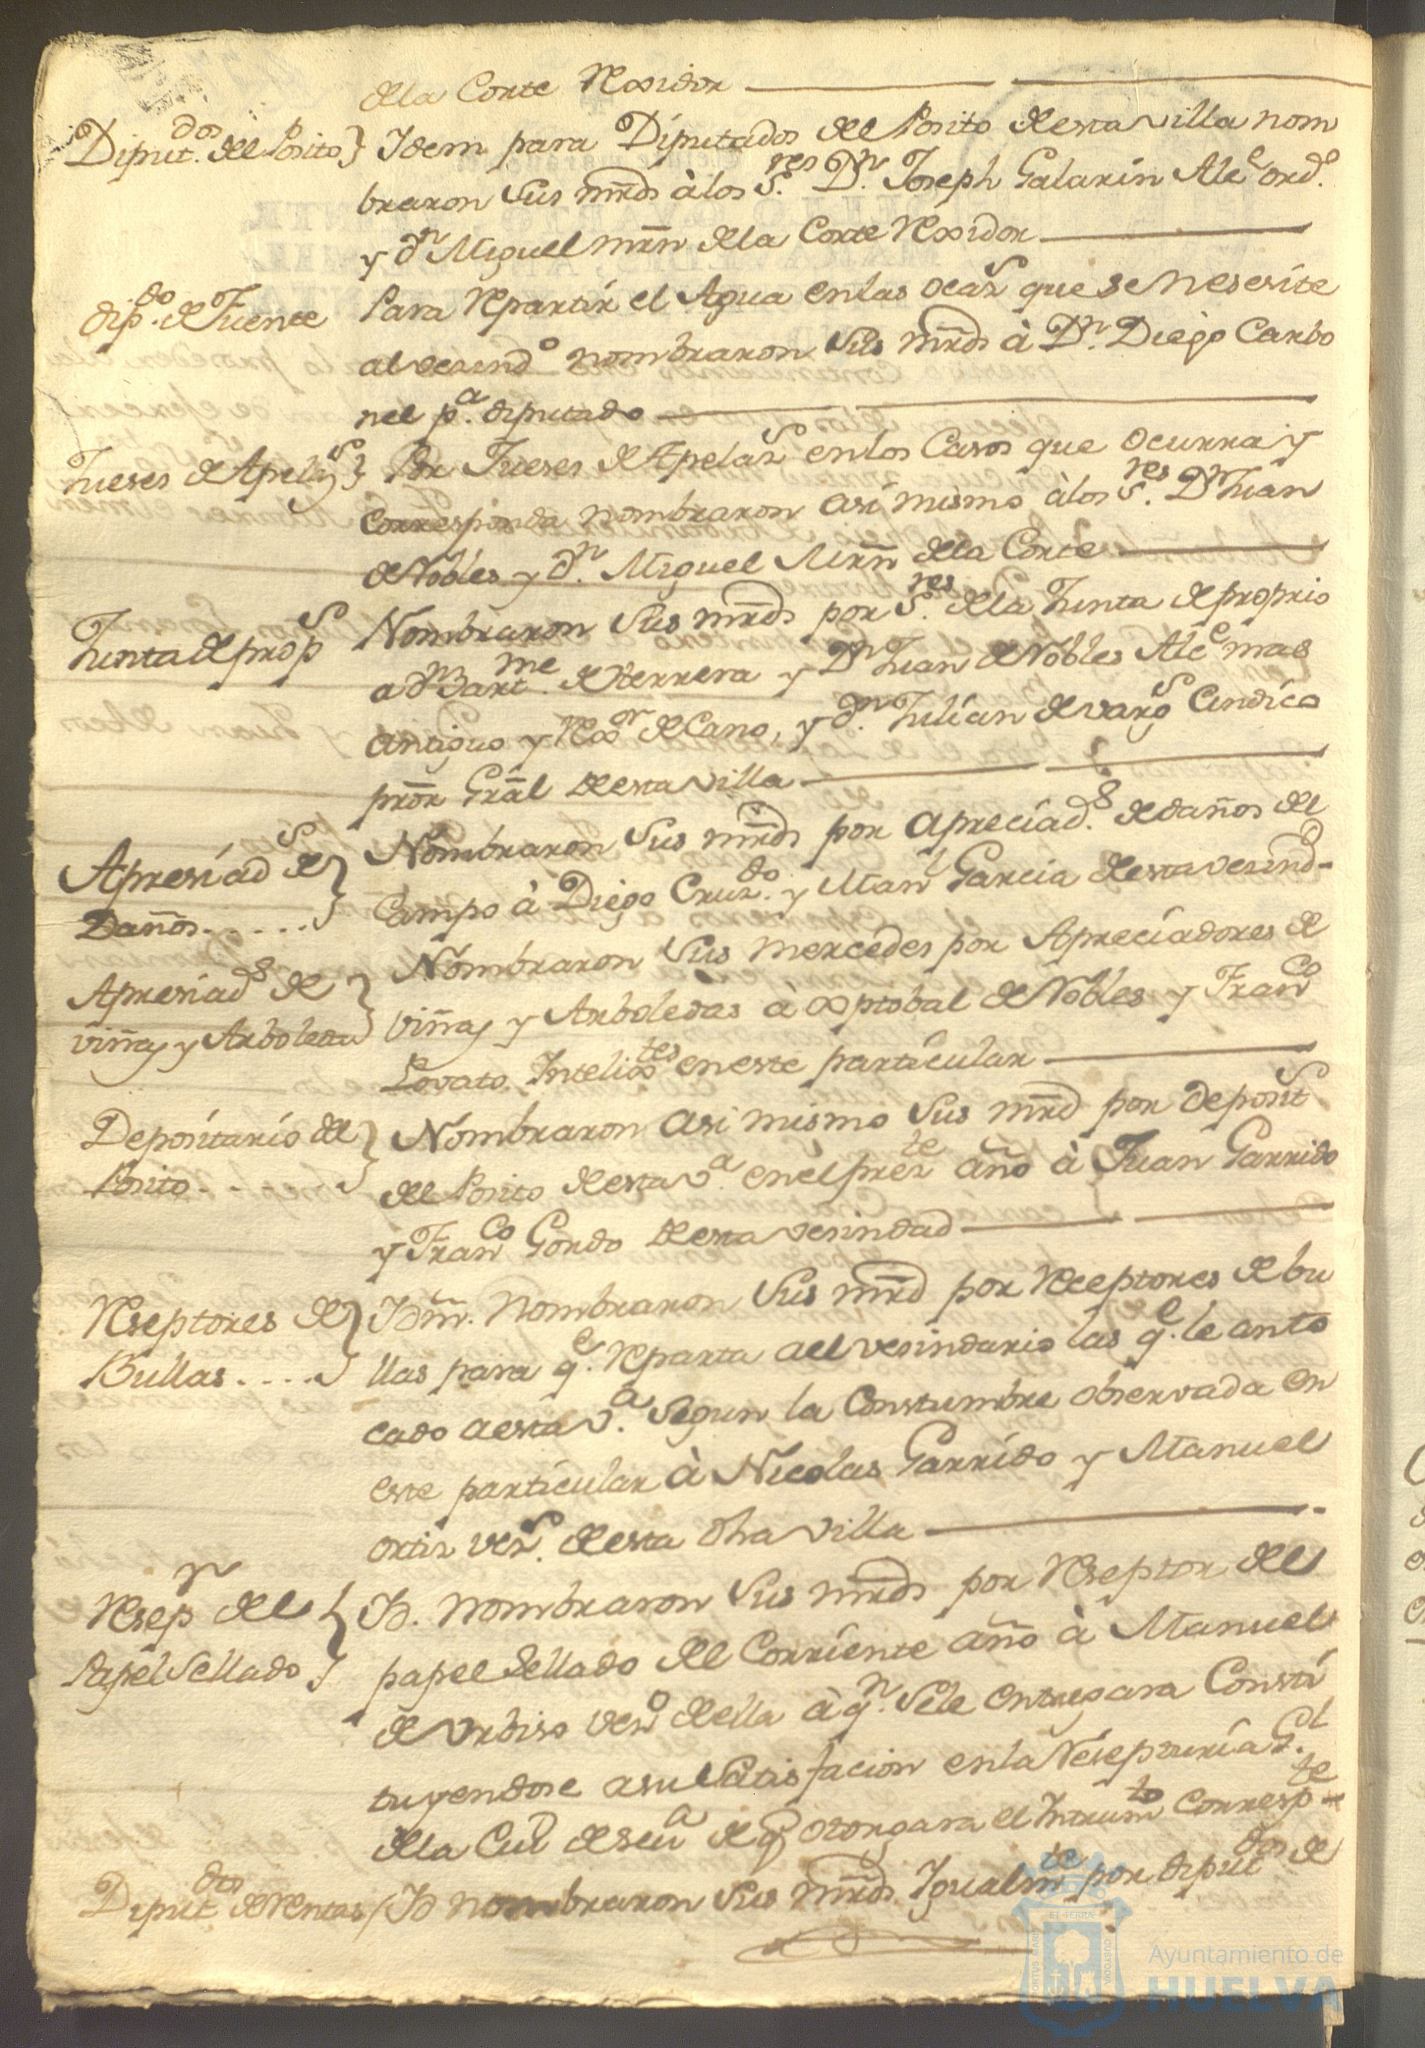 dela Corte Rexidor
Diput.dos del Posito} Idem para Diputados del Posito desta villa nom
braron sus mrds à los S.res D.n Joseph Galarin Alc.e ord.o
y d.n Miguel mrn dela Corte Rexidor
dip.do de Fuente Para Repartir el Agua en las ocaz.s que se Neserite
al vezind.o nombraron sus mrds à D.n Diego Carbo
nel p.a diputado
Jueses de Apelaz.s} Por Jueses de Apelaz.s en los Casos que ocurra y
corresponda nombraron asi mismo à los S.res D.n Juan
de Nobles y d.n Miguel Mrñ dela Corte
Junta de prop.s Nombraron sus mrds por S.res dela Junta de proprio
a d.n Bart.me de Herrera y D.n Juan de Nobles Alc.e mas
antiguo y Rex.or decano, y d.n Julian de varg.s Cindico
pror Gral desta villa
Apresiad.s de} Nombraron sus mrds por apreciad.s de daños del
Daños.....} Campo à Diego Cruz.do y Man.l Garcia desta vezind.d
Apresiad.s de} Nombraron sus mercedes por Apreciadores de
viñas y Arboleda} viñas y Arboledas à xptobal de Nobles y Fran.co
Lovato Intelix.tes en este particular
Depositario del} Nombraron asi mismo sus mrd por deposit.s
Posito..} del Posito desta v.a en el prez.te año à Juan Garrido
y Fran.co Gordo desta vesindad
Reseptores de} Idm. nombraron sus mrd por Receptores de bu
Bullas....} llas para q.e Reparta al vesindario las q.e le an to
cado a esta v.a segun la Constumbre observada en
este particular à Nicolas Garrido y Manuel
ortiz vez.s desta dha villa
Resep.r del} Id. nombraron sus mrds por Reseptor del
Papel Sellado} papel sellado del Corriente año à Manuel
de Urbiso vez.o della à q.n se le entregara Consti
tuyendose a su satisfacion en la Reseptturia G.l
dela Ciu.d de sev.a de q.e otorgara el Intrum.to corresp.te
Diput.dos de Rentas / Id nombraron sus mrds Igualm.te por diput.dos de
Ayuntamiento de
HUELVA